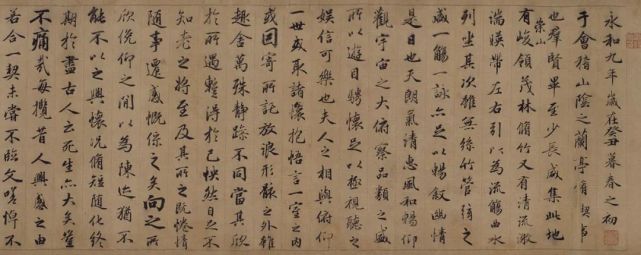 永和九年歲在癸丑暮春之初
于會稽山陰之蘭亭脩禊事
也羣賢畢至少長咸集此地
有崇山峻領茂林脩竹又有清流激
湍暎帶左右引以為流觴曲水
列坐其次雖無絲竹管弦之
盛一觴一詠亦足以暢敘幽情
是日也天朗氣清惠風和暢仰
觀宇宙之大俯察品類之盛
所以遊目騁懷足以極視聽之
娛信可樂也夫人之相與俯仰
一世或取諸懷抱悟言一室之內
或因寄所託放浪形骸之外雖
趣舍萬殊靜躁不同當其欣
於所遇暫得於己怏然自足不
知老之將至及其所之既惓情
隨事遷感慨係之矣向之所
欣俛仰之閒以為陳迹猶不
能不以之興懷況脩短隨化終
期於盡古人云死生亦大矣豈
不痛哉每攬昔人興感之由
若合一契未嘗不臨文嗟悼不